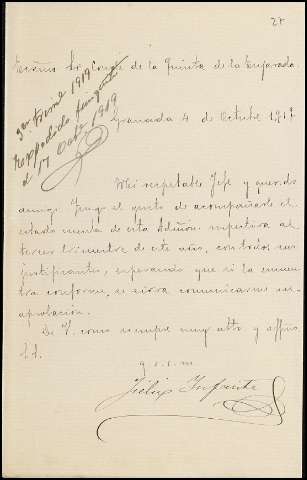 27
Excmo Sr Conde de la Quinta de la Enjarada.
3er Trime 1919
Respondida
el 17 Octe 1919
Granada 4 de Octubre 1919
Mi respetable Jefe y querido
amigo: Tengo el gusto de acompañarle el
estado cuenta de esta Admón. respectiva al
tercer trimestre de este año, con todos sus
justificantes, esperando que si la encuen-
tra conforme, se sirva comunicarme su
aprobación.
De V. como siempre muy atto. y affmo.
s.s.
q. e. s. m.
Infante